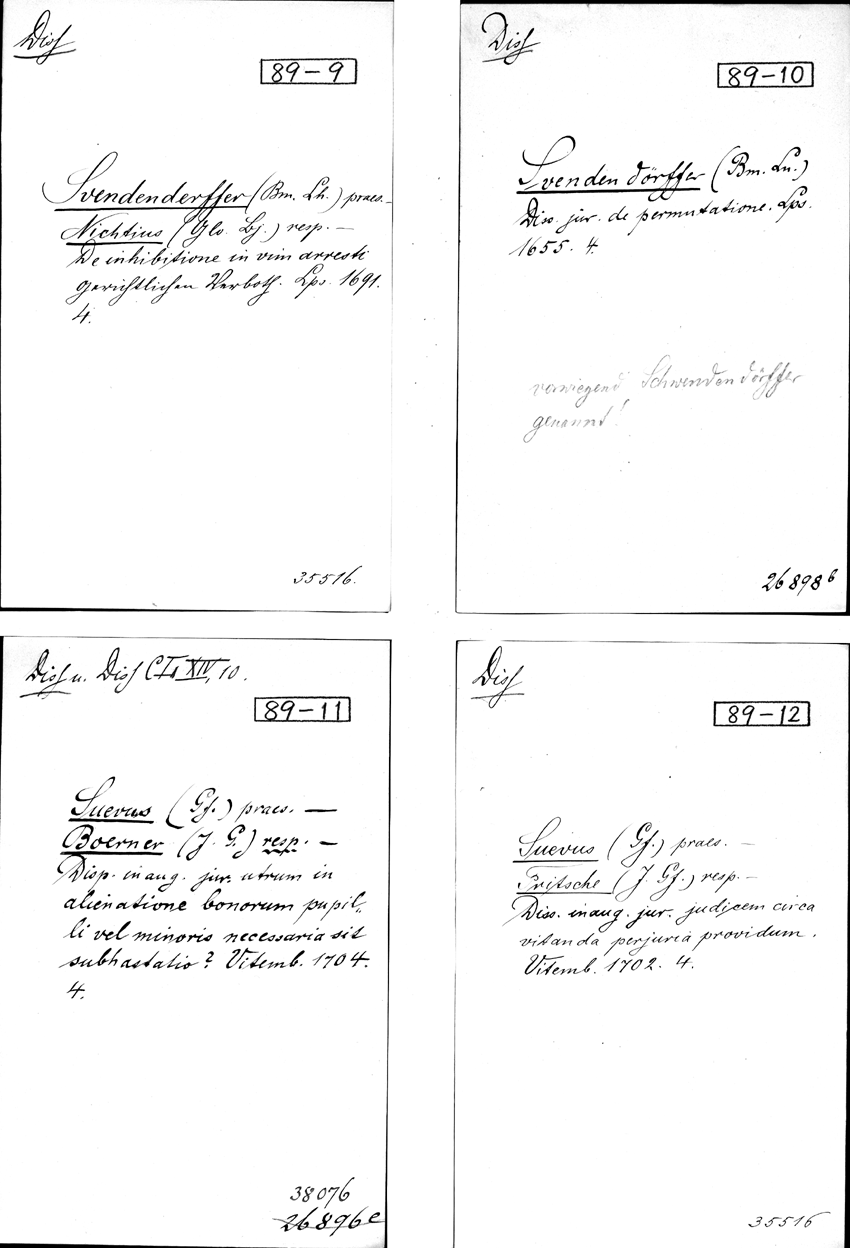 Diss
89-9
Svendenderffer (Bm. Lh.) praes. —
Nichtius (Glo. Lj.) resp. —
De inhibitione in vim arresti
gerichtlichen Verboth. Lps. 1691.
4.
35516.
Diss
89-10
Svendendörffer (Bm. Ln.)
Diss. jur. de permutatione. Lps.
1655. 4.
vorwiegend Schwendendörffer
genannt!
26898b
Diss u. Diss XIV, 10.
89-11
Suevus (Gf.) praes. —
Boerner (J. G.) resp. —
Disp. inaug. jur. utrum in
alienatione bonorum pupil-
li vel minoris necessaria sit
subhastatio? Vitemb. 1704.
4.
38076
26896e
Diss
89-12
Suevus (Gf.) praes. —
Fritsche (J. Gf.) resp. —
Diss. inaug. jur. judicem circa
vitanda perjuria providum.
Vitemb. 1702. 4.
35516